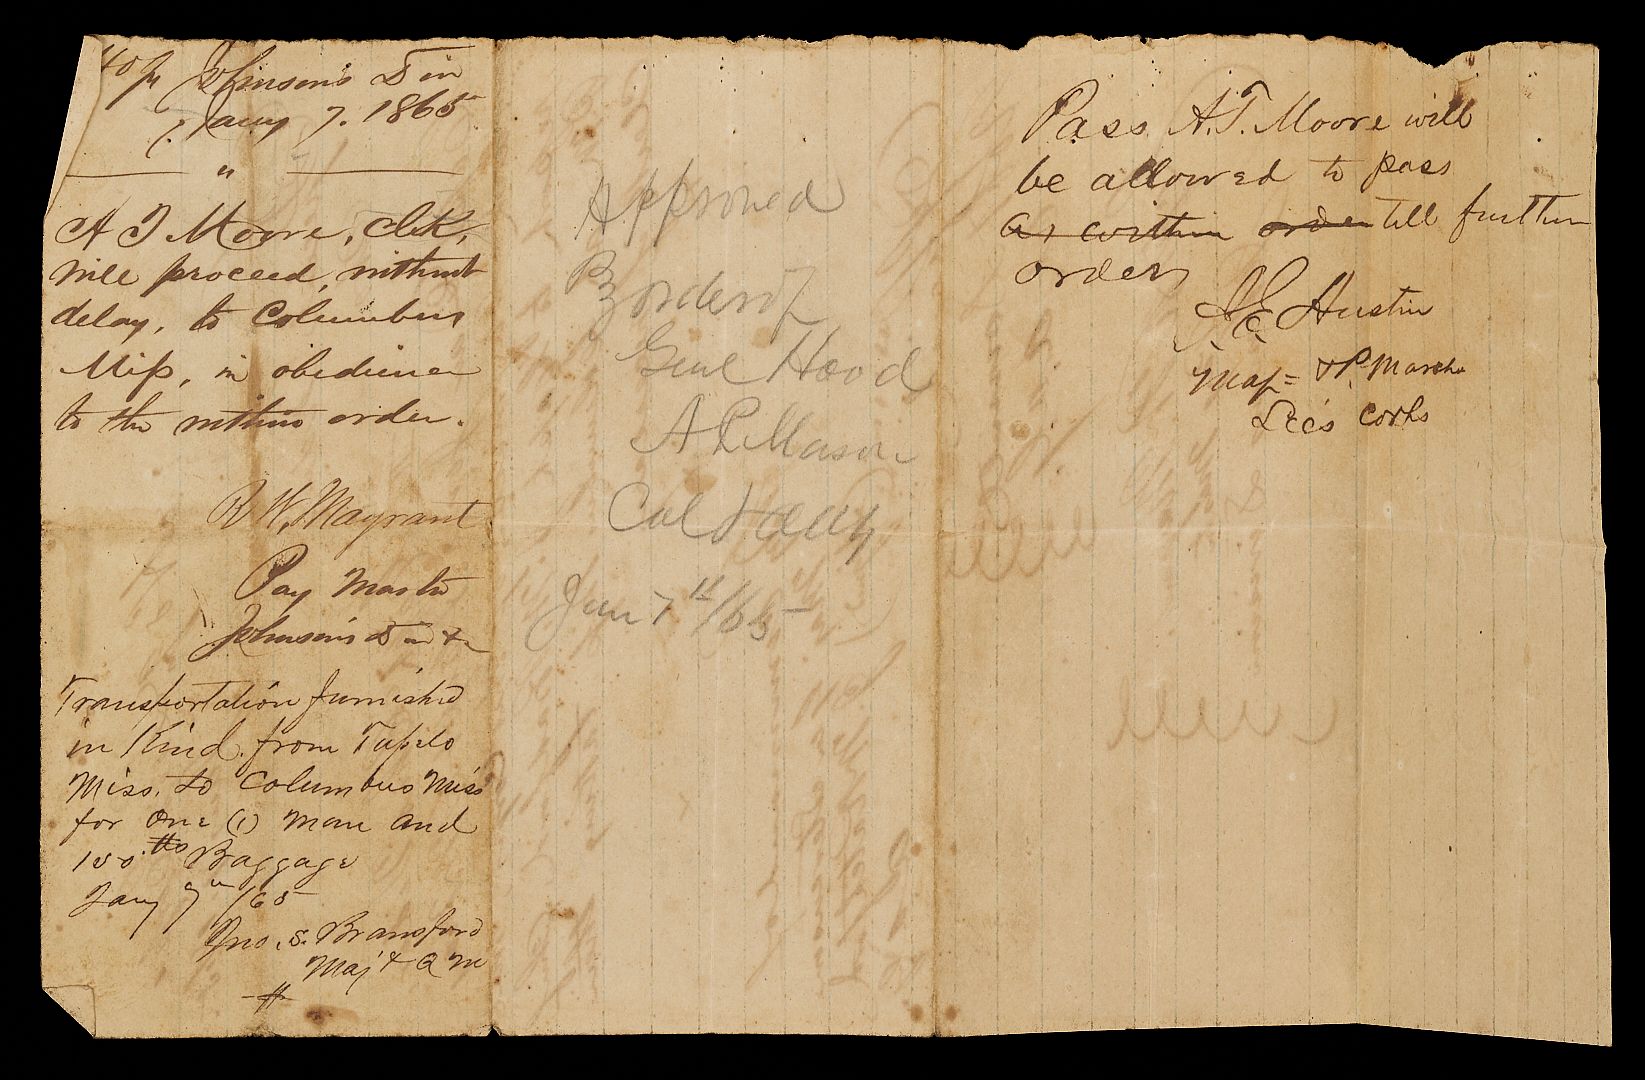 Hd Qr Johnson's Div
Jany 7. 1865
"
A J Moore, Clk,
will proceed, without
delay, to Columbus
Miss, in obedience
to the within order.
R W. Maygrant
Pay Master
Johnson's Div
Transportation furnished
in Kind from Tupelo
Miss. to Columbus Miss
for One (1) man and
100 lbs Baggage
Jany 7th /65
Jno. S. Bransford
Maj & Q M
Approved
By order of
Genl Hood
A P Mason
Col & AAG
Jan 7th/65
Pass A. J. Moore will
be allowed to pass
as within order till further
orders
Hustin
Maj = & P. Marshal
Lee's Corps